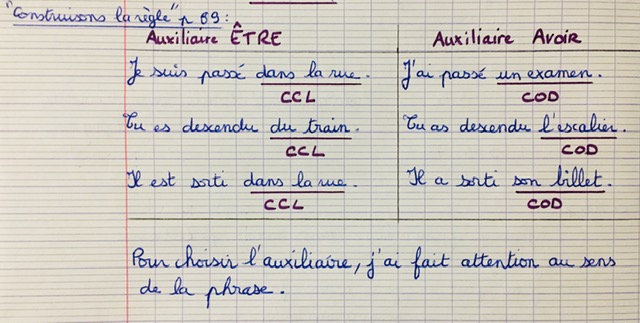 "Construisons la règle" p 89 :
Auxiliaire ÊTRE
Auxiliaire AVOIR
Je suis passé dans la rue.
J'ai passé un examen.
CCL
COD
Tu es descendu du train.
Tu as descendu l'escalier.
CCL
COD
Il est sorti dans la rue.
Il a sorti son billet.
CCL
COD
Pour choisir l'auxiliaire, j'ai fait attention au sens
de la phrase.